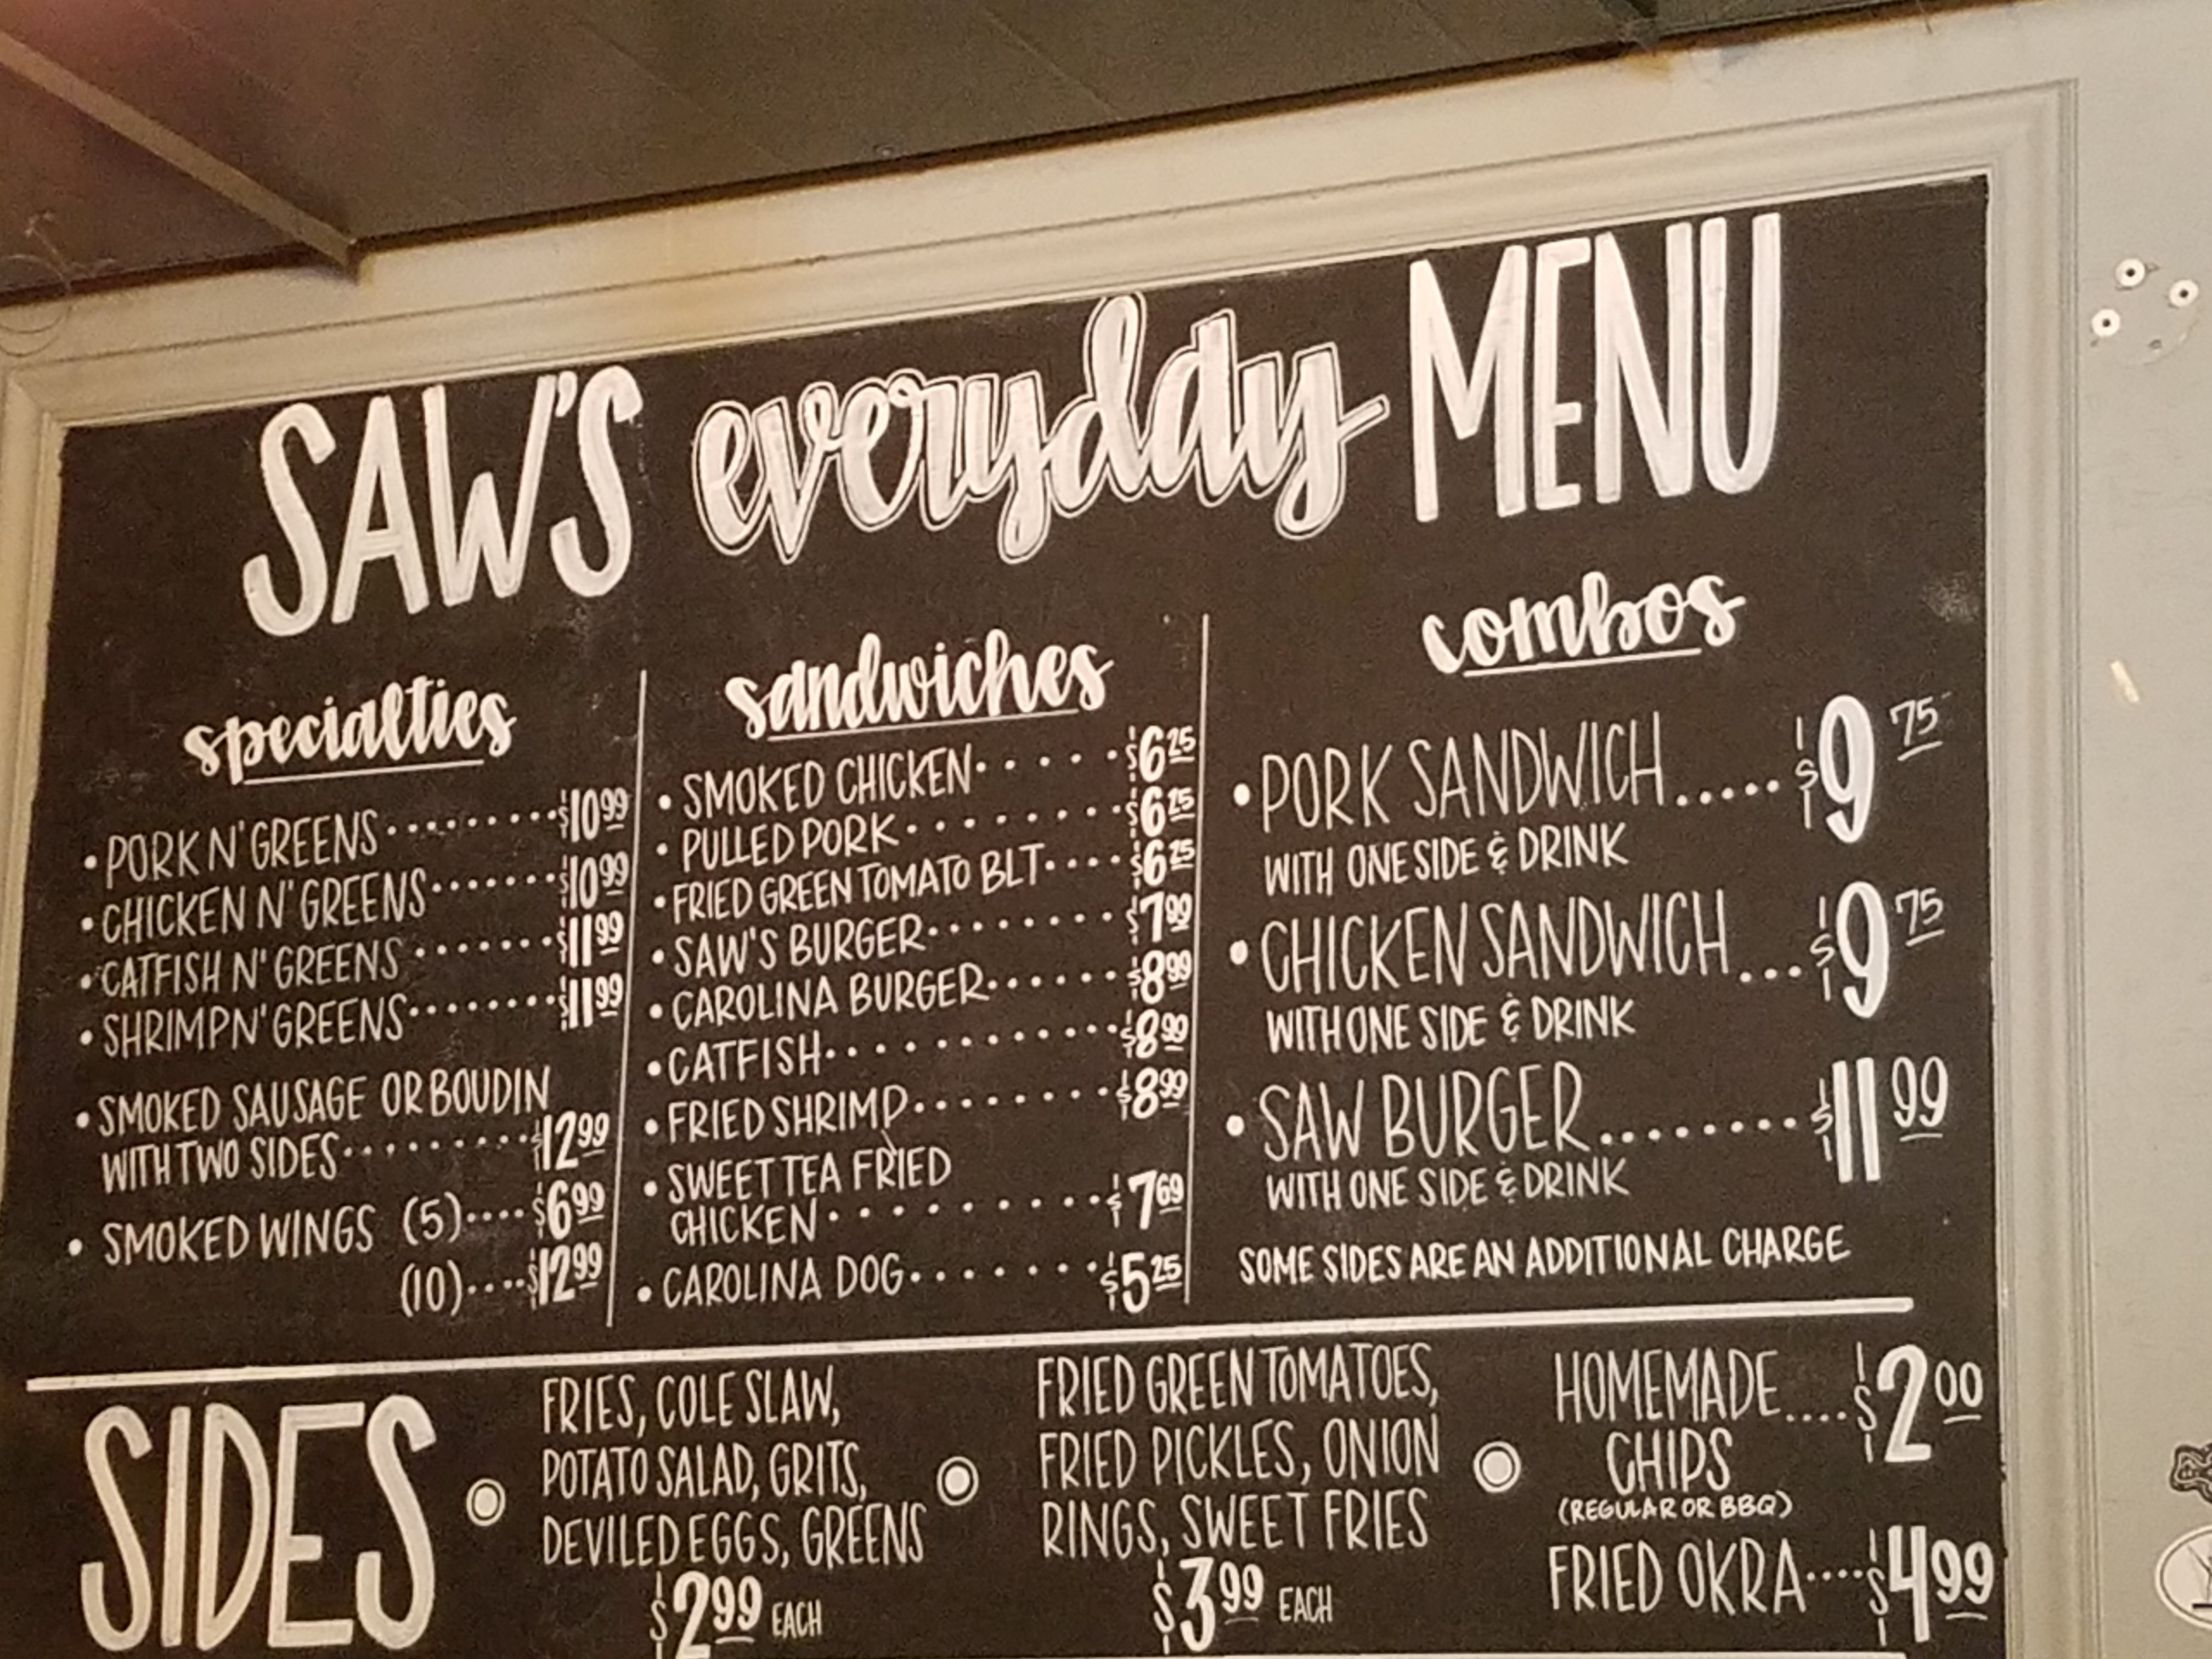 SAW'S everyday MENU
specialties
• PORK N' GREENS ......... $10.99
• CHICKEN N' GREENS ....... $10.99
• CATFISH N' GREENS ....... $11.99
• SHRIMP N' GREENS ........ $11.99
• SMOKED SAUSAGE OR BOUDIN
WITH TWO SIDES ......... $12.99
• SMOKED WINGS (5) .... $6.99
(10) .... $12.99
sandwiches
• SMOKED CHICKEN ...... $6.25
• PULLED PORK ........ $6.25
• FRIED GREEN TOMATO BLT .... $6.25
• SAW'S BURGER ........ $7.99
• CAROLINA BURGER ...... $8.99
• CATFISH ........... $8.99
• FRIED SHRIMP ........ $8.99
• SWEET TEA FRIED
CHICKEN .......... $7.69
• CAROLINA DOG ....... $5.25
combos
• PORK SANDWICH ..... $9.75
WITH ONE SIDE & DRINK
• CHICKEN SANDWICH ... $9.75
WITH ONE SIDE & DRINK
• SAW BURGER ........ $11.99
WITH ONE SIDE & DRINK
SOME SIDES ARE AN ADDITIONAL CHARGE
SIDES
FRIES, COLE SLAW,
POTATO SALAD, GRITS,
DEVILED EGGS, GREENS
$2.99 EACH
FRIED GREEN TOMATOES,
FRIED PICKLES, ONION
RINGS, SWEET FRIES
$3.99 EACH
HOMEMADE .... $2.00
CHIPS
(REGULAR OR BBQ)
FRIED OKRA .... $4.99